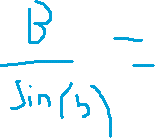 B/sin(b) =